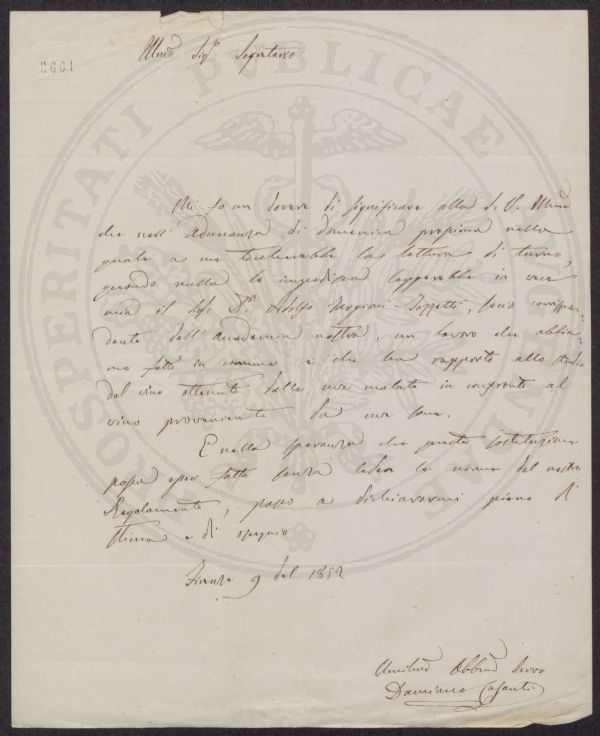 2661
Illmo Sigr Segretario
Mi fo un dovere di significare alla S. V. Illma
che nell' Adunanza di domenica prossima nella
quale a me toccherebbe la lettura di turno,
quando nulla lo impedisca leggerebbe in vece
mia il Sigr Dr Adolfo Targioni-Tozzetti, socio corrispon-
dente dell' Accademia nostra, un lavoro che abbia-
mo fatto in comune e che ha rapporto allo studio
del vino ottenuto dalle uve malate in confronto al
vino proveniente da uve sane.
E nella speranza che questa sostituzione
possa esser fatta senza ledere le norme del nostro
Regolamento, passo a dichiararmi pieno di
stima e di ossequio
Firenze 9 del 1852
Umilmo Obblmo Servo
Damiano Casanti
PROSPERITATI PUBLICAE